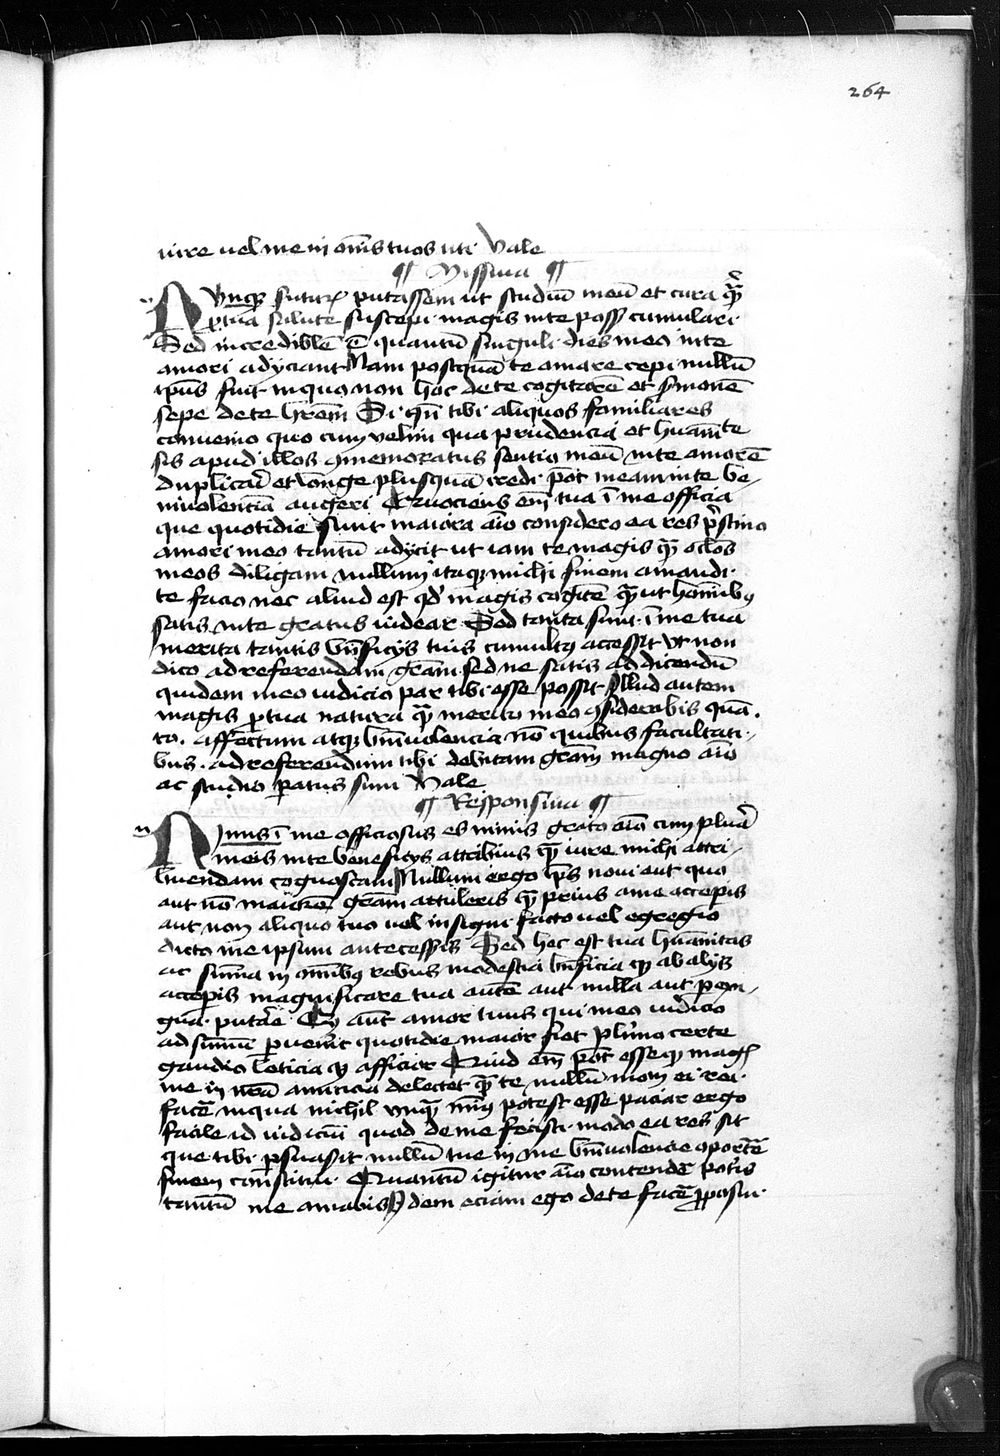 264
iure uel me in om̄s tuos uti Vale
¶ Missiua ¶
Nvnqꝫ futurū putassem ut studiū meū et cura quā̄
ꝓ tua salute suscepi magis in te possꝫ cumulari
Sed incredibile ē quantū singuli dies meo in te
amori adyciant Nam postquā te amare cepi nullū
tp̄us fuit in quo non hoc de te cogitarē et smonē
sepe de te hrem̄ Si qn̄ tibi aliquos familiares
conuenio quo cum velim qua prudencia et huāitate
sis apud illos ɔmemoratus sentio meū in te amorē
duplicari et longe plusquā credi pōt meam in te be-
niuolentiā augeri Quociens em̄ tua ī me officia
que quotidie sunt maiora aīo considero ea res p̄stino
amori meo tantū adycit ut iam te magis qꝫ oclōs
meos diligam nullum itaqꝫ michi finem amandi
te facio nec aliud est qd̄ magis cogitē quā ut homībꝫ
satis in te gratus uidear Sed tanta sunt ī me tua
merita tantis bn̄ficys tuis cumulꝰ accessit vt non
dico ad referendam gr̄am sed ne satis ad dicendū
quidem meo iudicio par tibi esse possit Illud autem
magis ꝓ tua natura quā merito meo ɔsiderabis quā-
to affectum atqꝫ bn̄iuolencia nō quibus facultati-
bus ad referendum tibi debitam gr̄am magno aīo
ac studio paratus sum Vale
¶ Responsiua ¶
Nimis ī me officiosus es nimis grato aīo cum plura
meis in te beneficys attribuis quā iure michi attri-
buendam cognoscam Nullum ergo tp̄s noui aut quo
aut nō maiorem gr̄am attuleris quā prius a me acceperis
aut non aliquo tuo uel insigni facto uel egregio
dicto me ipsum antecesseris Sed hec est tua huāitas
ac sum̄a in om̄ibꝫ rebus modestia bn̄ficia qꝫ ab alys
acceperis magnificare tua autē aut nulla aut pery-
gua putare Cū aut̄ amor tuus qui meo iudicio
ad summū peruen̄it quotidie maior fiet plurimo certe
gaudio leticia qꝫ afficior Quid em̄ pōt esse qꝫ magis
me in nr̄a amicicia delectet quā te nullū mom̄ ei rei
facē in qua nichil vnquā nimis potest esse paciar ergo
facile id iudiciū quod de me fecisti modo ea res sit
que tibi persuasit nullū tue in me bn̄iuolencie oportē
finem constitui Quantū igitur aīo contenderē poteris
tantū me amabis Idem eciam ego de te facē ꝓposui